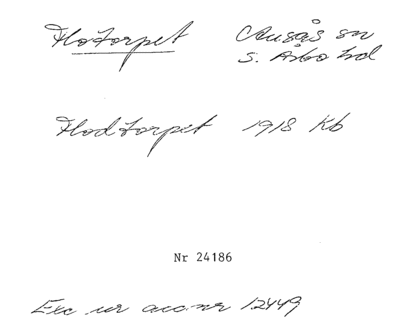 Flotorpet Ausås sn
S. Åsbo hd
Flodtorpet 1918 Kb
Nr 24186
Exc ur acc.nr 12449